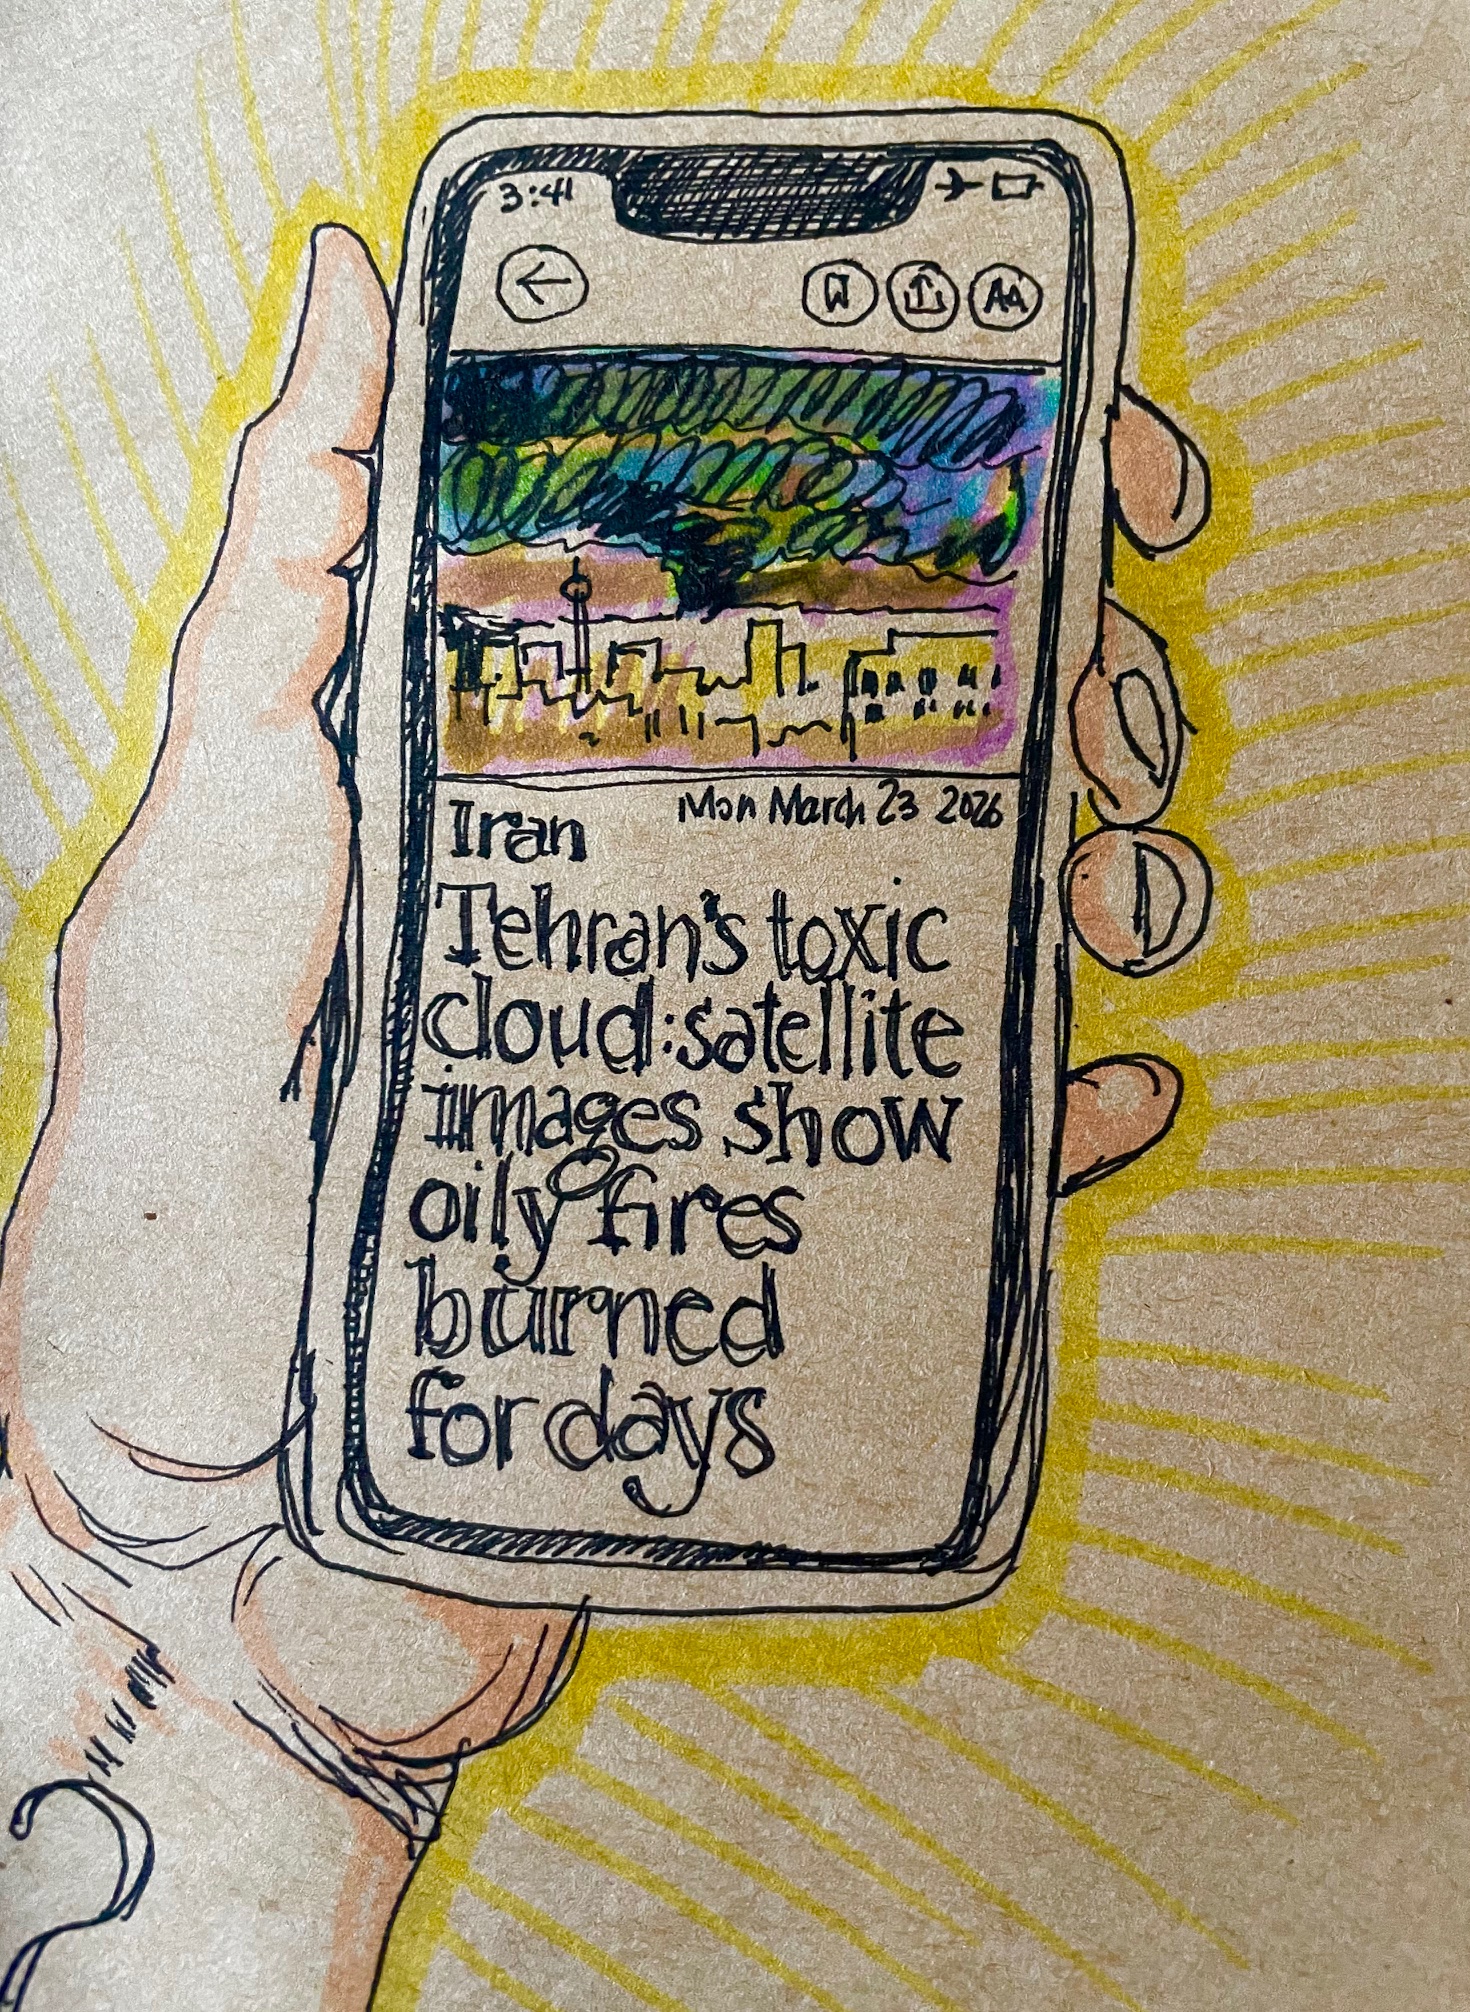 3:41
W AA
Iran
Mon March 23 2026
Tehran's toxic
cloud: satellite
images show
oily fires
burned
for days